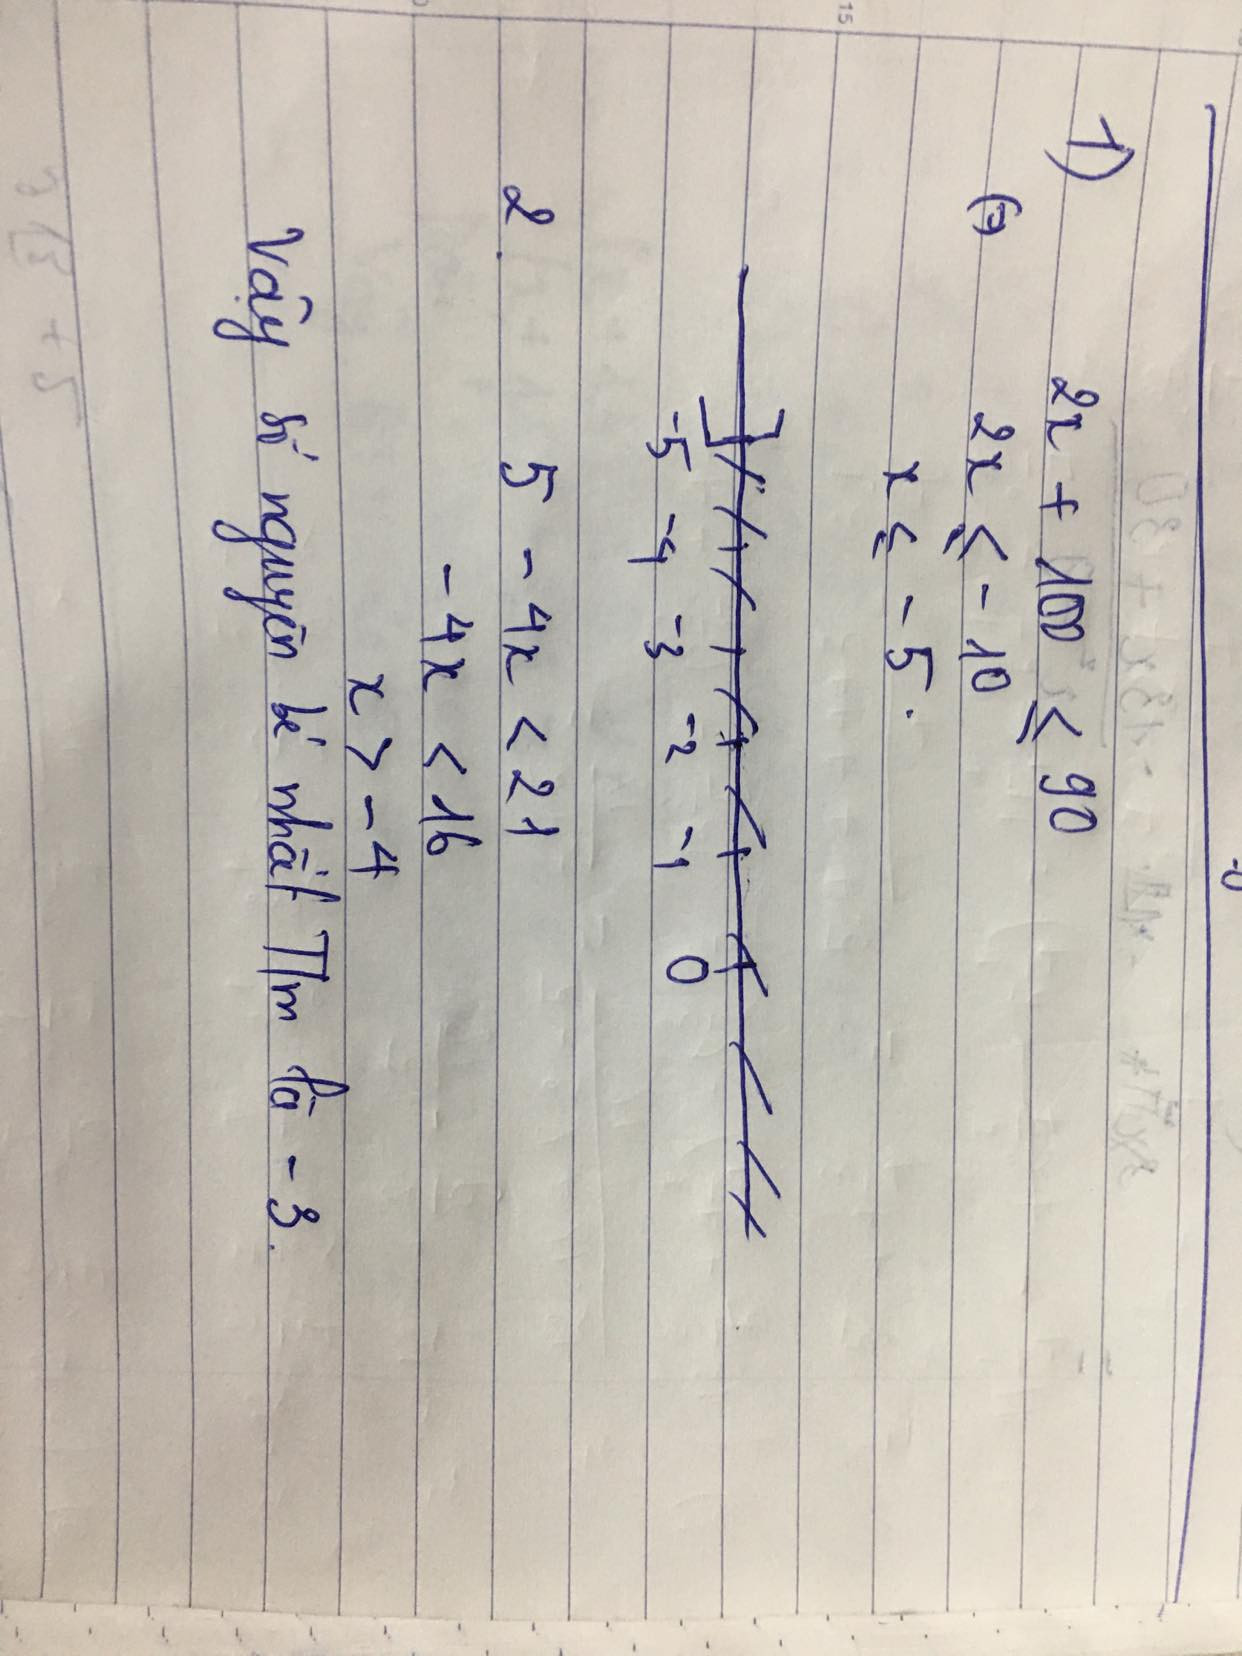 1) 2x + 100 ≤ 90
(=) 2x ≤ -10
x ≤ -5.
-5 -4 -3 -2 -1 0
2. 5 - 4x < 21
-4x < 16
x > -4
Vậy số nguyên bé nhất Tm là -3.